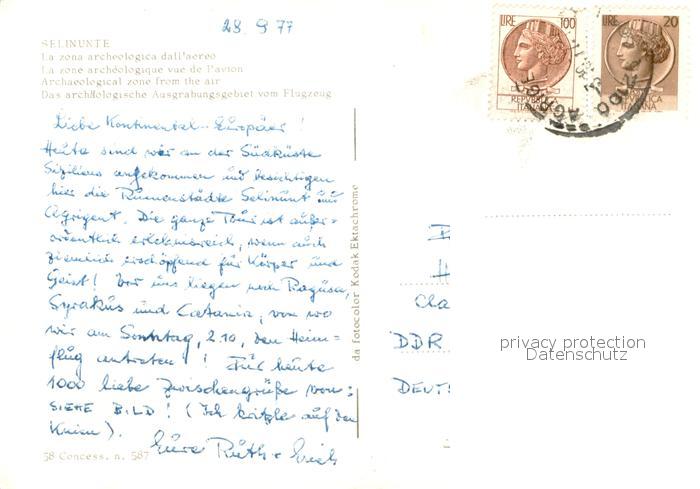 28 9 77
SELINUNTE
La zona archeologica dall'aereo
La zone archéologique vue de l'avion
Archaeological zone from the air
Das archäologische Ausgrabungsgebiet vom Flugzeug
Liebe Kontinental-Europäer!
Heute sind wir an der Südküste
Siziliens angekommen und besichtigen
hier die Ruinenstädte Selinunt und
Agrigent. Die ganze Tour ist außer=
ordentlich erlebnisreich, wenn auch
ziemlich erschöpfend für Körper und
Geist! Vor uns liegen noch Ragusa,
Syrakus und Catania, von wo
wir am Sonntag, 2.10, den Heim=
flug antreten! Für heute
1000 liebe Zwischengrüße von:
SIEHE BILD! (Ich kritzle auf den
Knien). Eure Ruth + Erich
58 Concess. n. 587
da fotocolor Kodak Ektachrome
LIRE 100
REPUBBLICA
ITALIANA
LIRE 20
REPUBBLICA
ITALIANA
H
Cla
DDR
DEUTS
privacy protection
Datenschutz